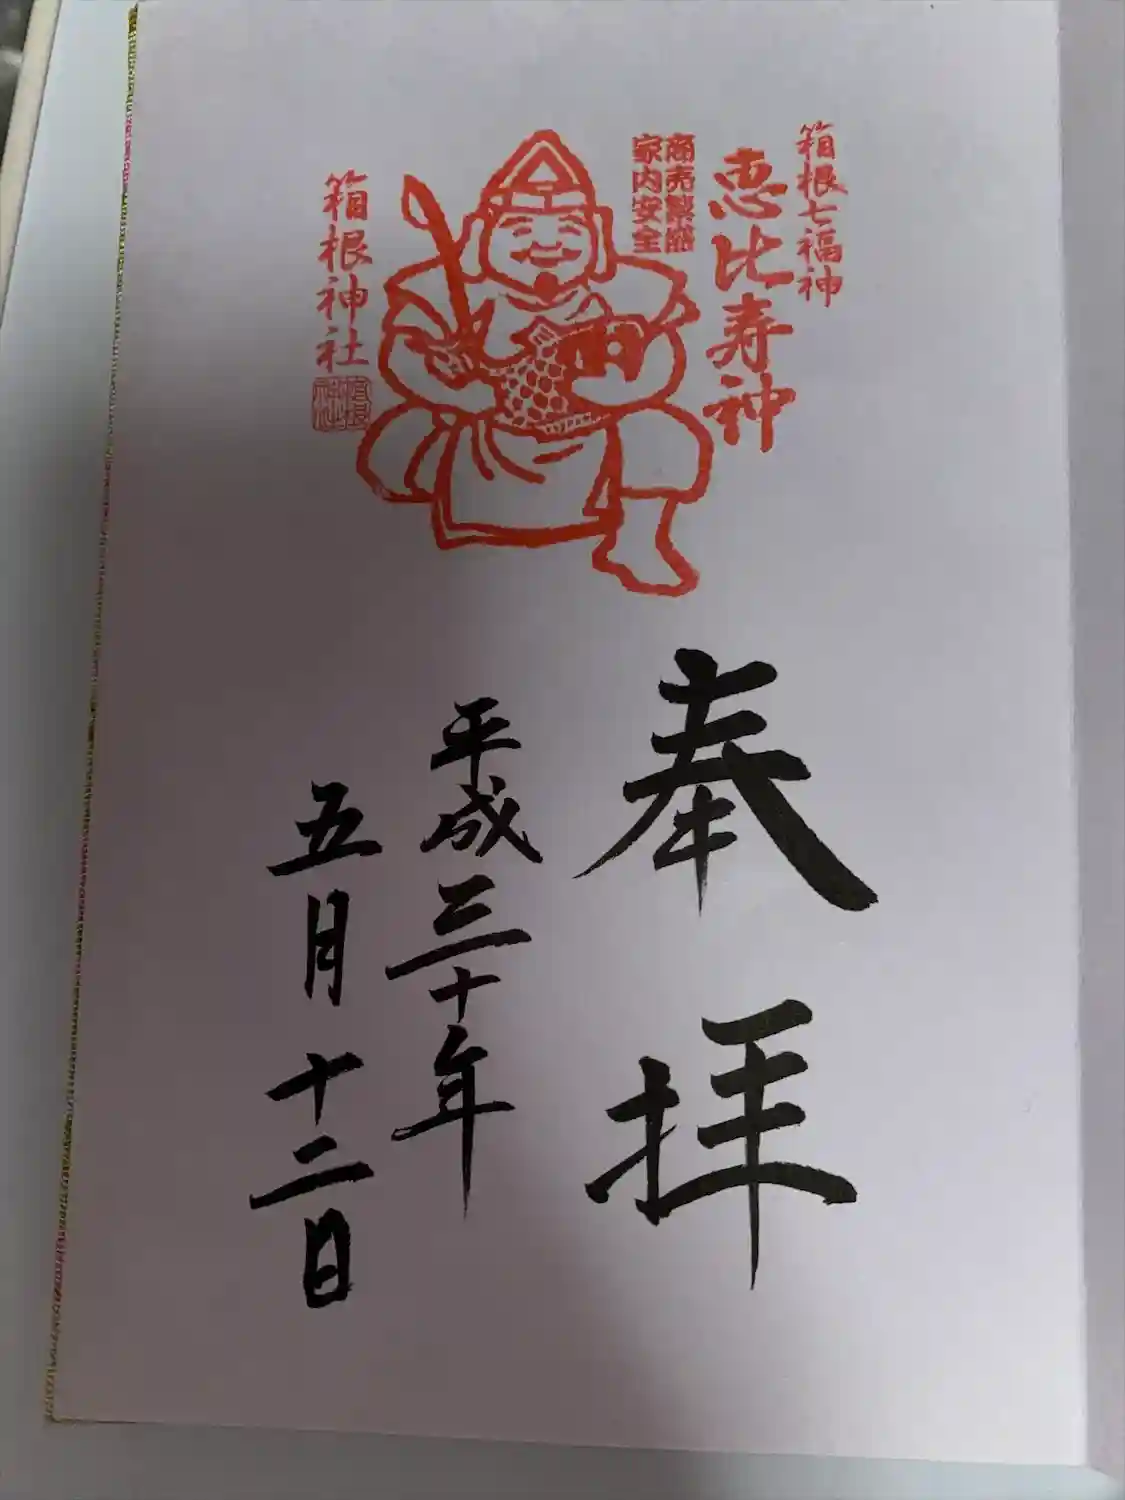 箱根七福神
恵比寿神
商売繁盛
家内安全
箱根神社
奉拝
平成三十年
五月十二日